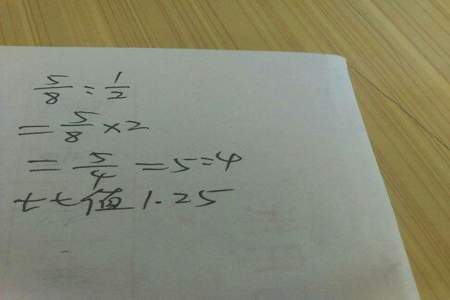 5/8:1/2
=5/8×2
=5/4=5:4
比值1.25